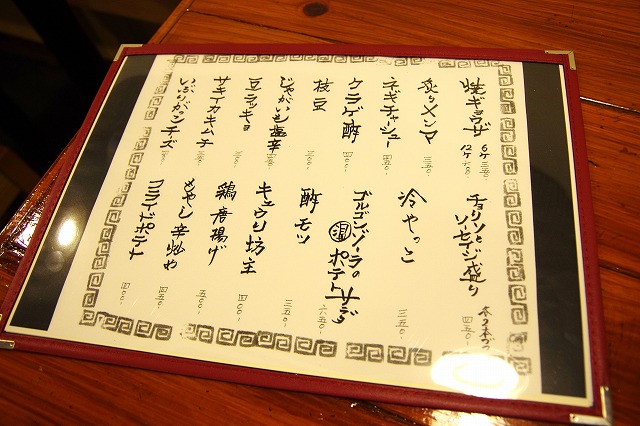 焼ギョウザ 6ケ 三五〇
12ケ 六八〇
炙りメンマ 三五〇-
ネギチャーシュー 四五〇-
クラゲ酢 四〇〇-
枝豆 三〇〇-
じゃがいも塩辛
豆ラッキョ
サキイカキムチ
いぶりがっこチーズ
チョリソとソーセイジ盛り 各2本づつ 四五〇-
冷やっこ 三五〇-
ゴルゴンゾーラの温ポテトサラダ 六五〇-
酢モツ 三五〇-
キュウリ坊主 四〇〇-
鶏唐揚げ 五〇〇-
もやし辛炒め 四五〇-
フライドポテト 四〇〇-